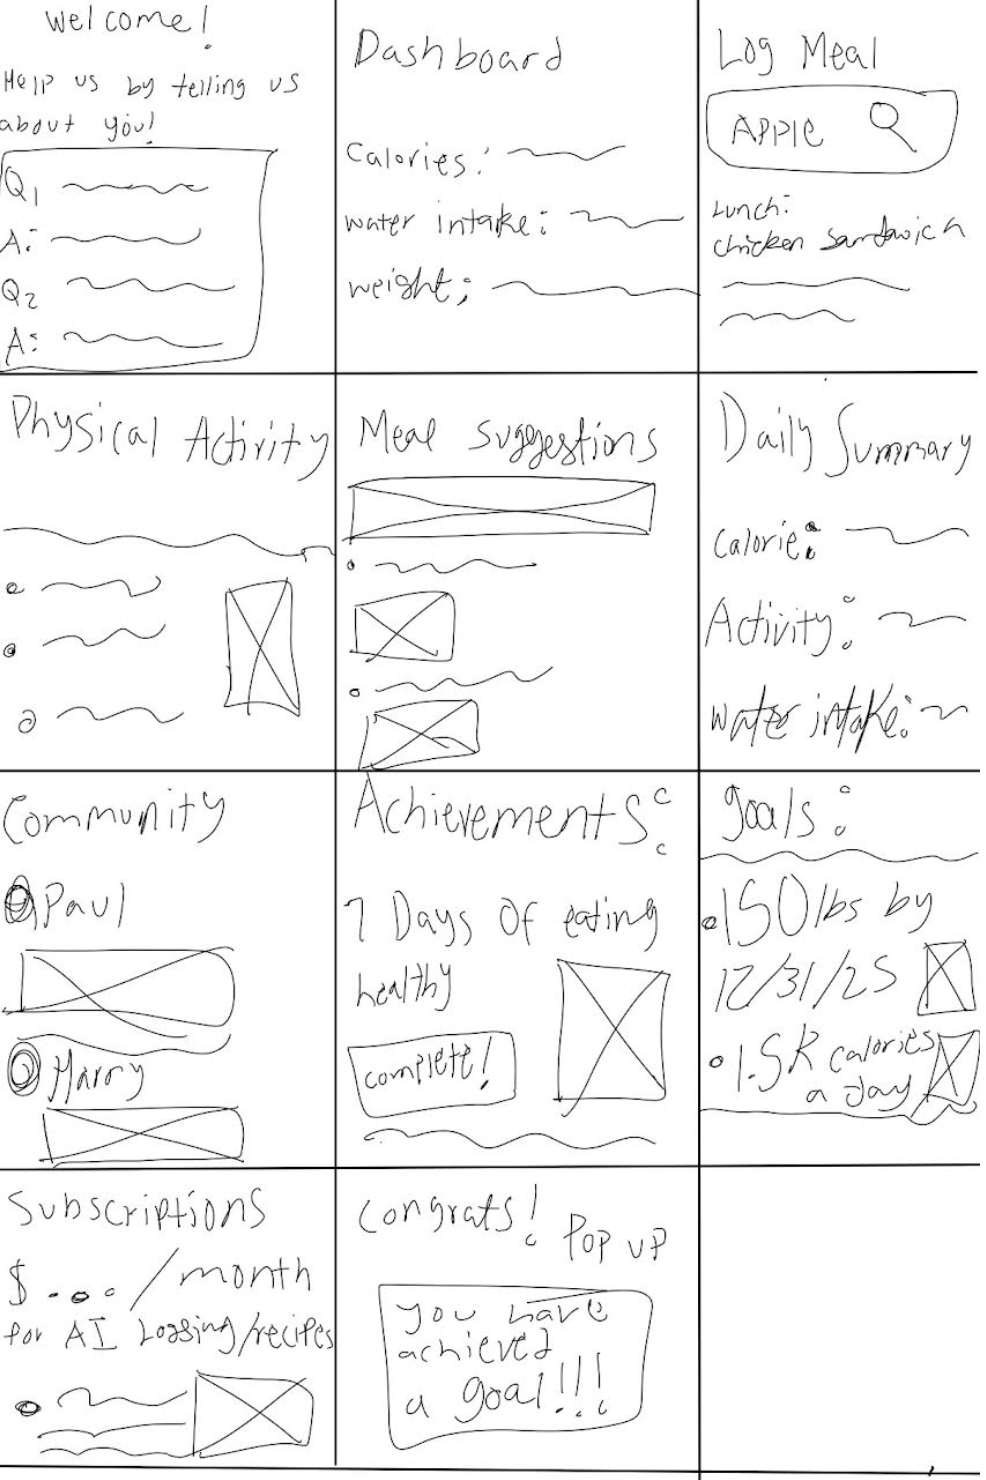 Welcome!
Help us by telling us
about you!
Q1
A:
Q2
A:
Dashboard
Calories:
water intake:
weight:
Log Meal
Apple
Lunch:
chicken sandwich
Physical Activity
Meal suggestions
Daily Summary
Calorie:
Activity:
water intake:
Community
Paul
Harry
Achievements:
7 Days of eating
healthy
complete!
goals:
150 lbs by
12/31/25
1.5K calories
a day
Subscriptions
$ ... /month
for AI Logging/recipes
Congrats!
Pop up
you have
achieved
a goal!!!